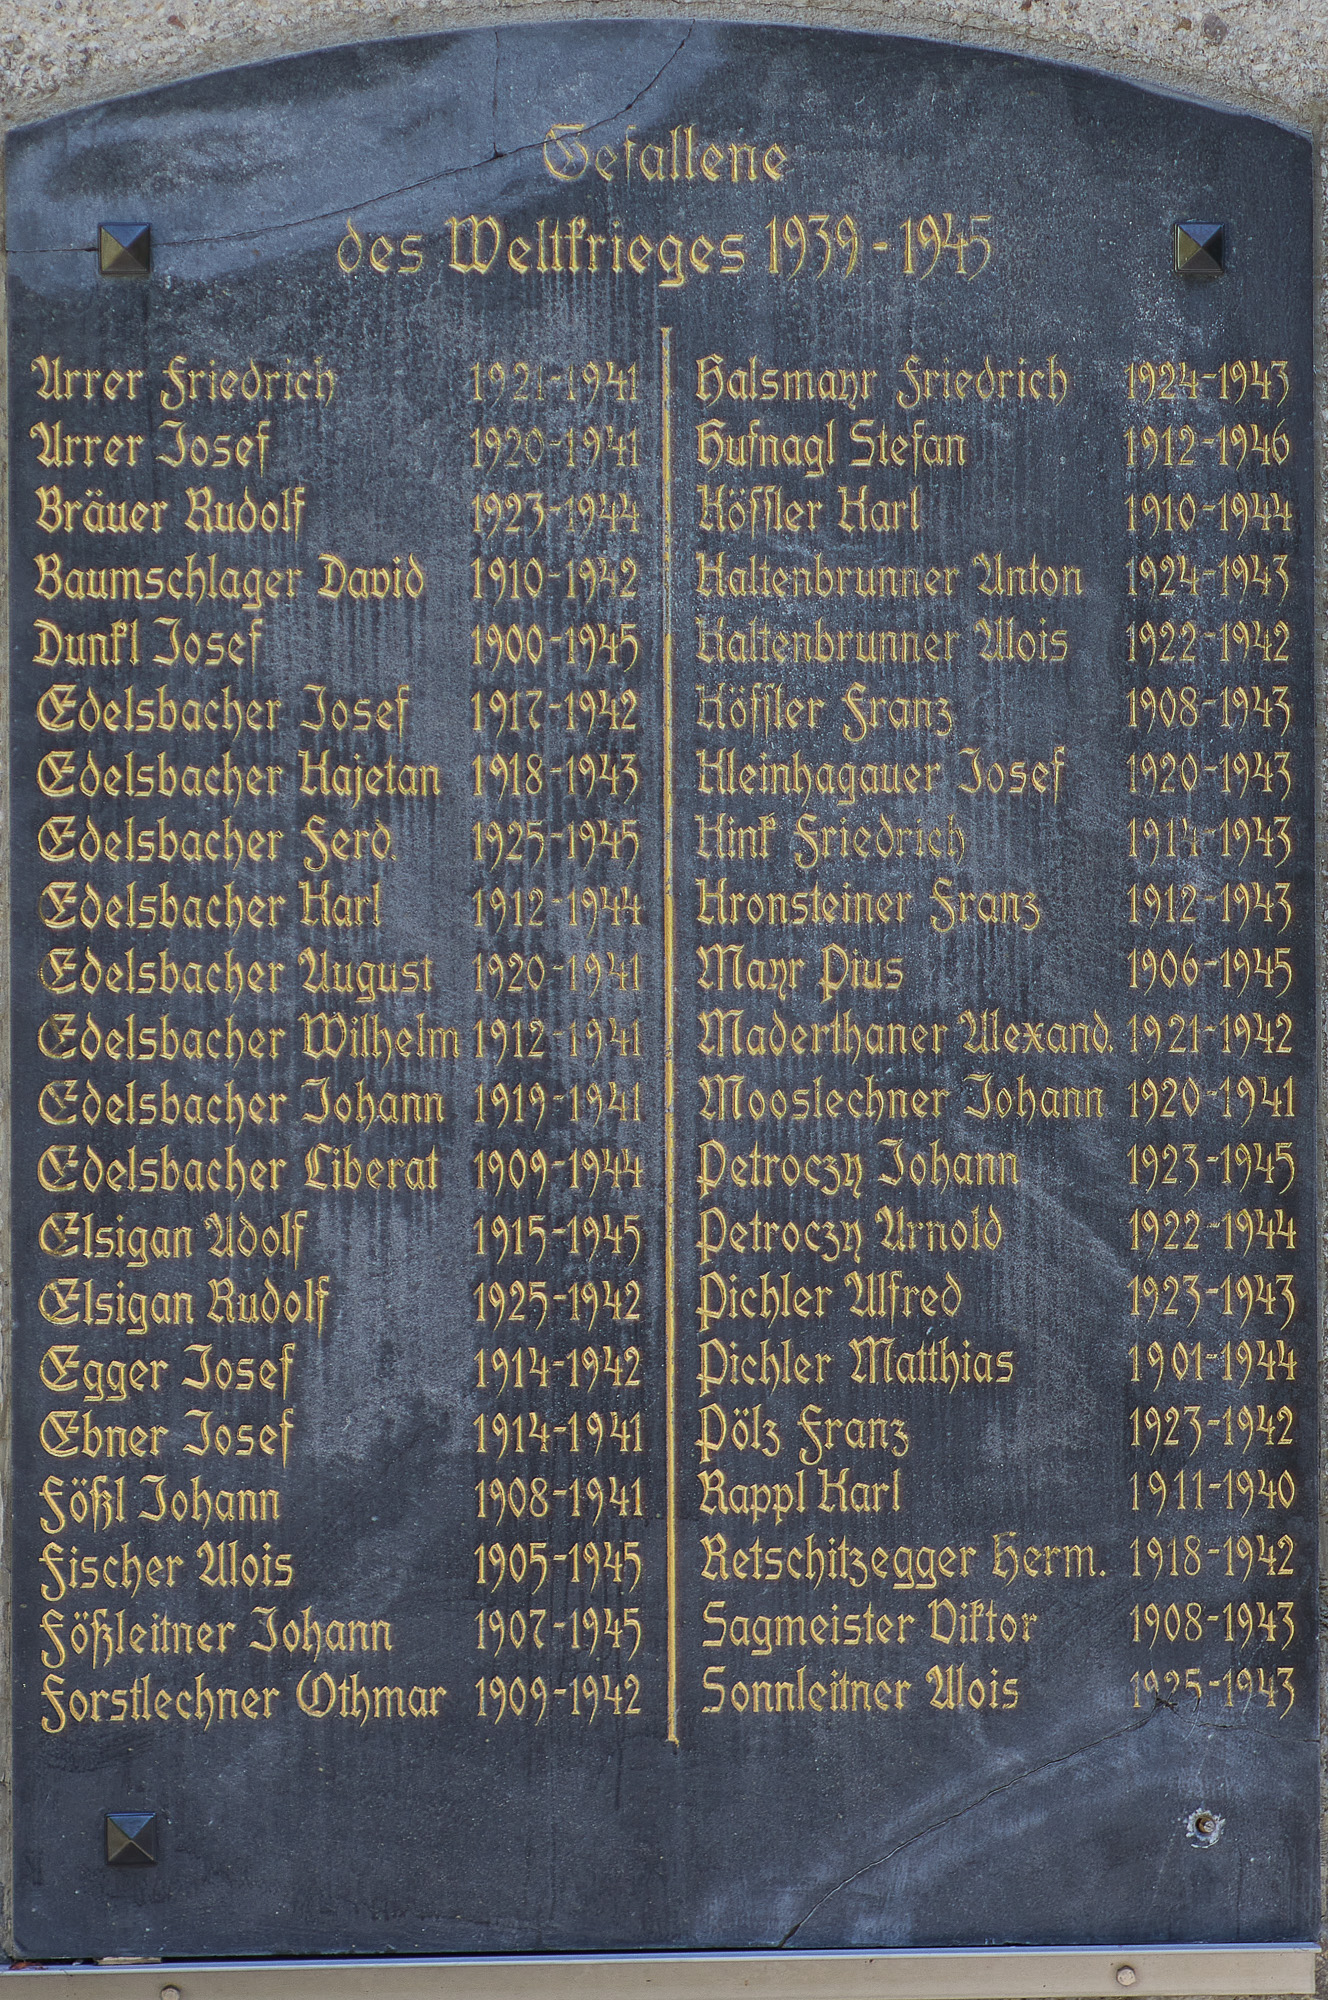 Gefallene
des Weltkrieges 1939-1945
Arrer Friedrich 1921-1941
Arrer Josef 1920-1941
Bräuer Rudolf 1923-1944
Baumschlager David 1910-1942
Dunkl Josef 1900-1945
Edelsbacher Josef 1917-1942
Edelsbacher Kajetan 1918-1943
Edelsbacher Ferd. 1925-1945
Edelsbacher Karl 1912-1944
Edelsbacher August 1920-1941
Edelsbacher Wilhelm 1912-1941
Edelsbacher Johann 1919-1941
Edelsbacher Liberat 1909-1944
Elsigan Adolf 1915-1945
Elsigan Rudolf 1925-1942
Egger Josef 1914-1942
Ebner Josef 1914-1941
Fößl Johann 1908-1941
Fischer Alois 1905-1945
Fößleitner Johann 1907-1945
Forstlechner Othmar 1909-1942
Halsmayr Friedrich 1924-1943
Hufnagl Stefan 1912-1946
Kössler Karl 1910-1944
Kaltenbrunner Anton 1924-1943
Kaltenbrunner Alois 1922-1942
Kössler Franz 1908-1943
Kleinhagauer Josef 1920-1943
Kink Friedrich 1914-1943
Kronsteiner Franz 1912-1943
Mayr Pius 1906-1945
Maderthaner Alexand. 1921-1942
Mooslechner Johann 1920-1941
Petroczy Johann 1923-1945
Petroczy Arnold 1922-1944
Pichler Alfred 1923-1943
Pichler Matthias 1901-1944
Pölz Franz 1923-1942
Rappl Karl 1911-1940
Retschitzegger Herm. 1918-1942
Sagmeister Viktor 1908-1943
Sonnleitner Alois 1925-1943